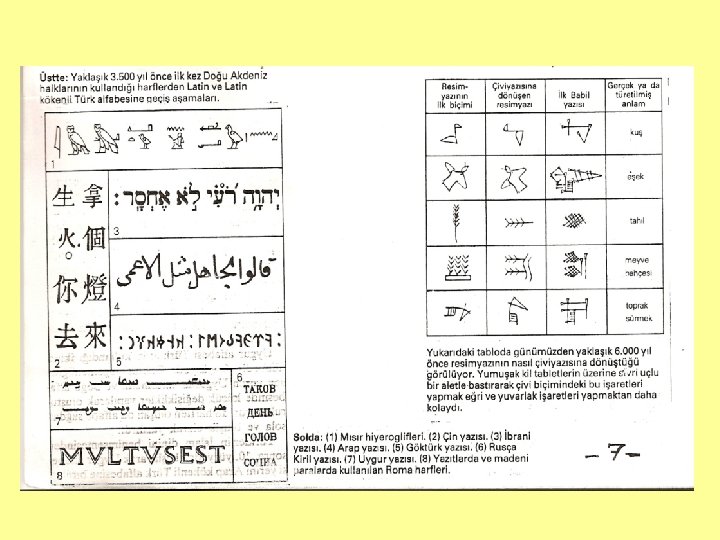 Üstte: Yaklaşık 3.500 yıl önce ilk kez Doğu Akdeniz
halklarının kullandığı harflerden Latin ve Latin
kökenli Türk alfabesine geçiş aşamaları.
1
生 拿
火 個
你 燈
去 來
2
יְהוָה רֹעִי לֹא אֶחְסָר:
3
قالوا الجاهل مثل الاعمى
4
5
6
ТАКОВ
ДЕНЬ
ГОЛОВ
7
MVLTVSEST
8
Resim-
yazının
ilk biçimi
Çiviyazısına
dönüşen
resimyazı
İlk Babil
yazısı
Gerçek ya da
türetilmiş
anlam
kuş
eşek
tahıl
meyve
bahçesi
toprak
sürmek
Yukarıdaki tabloda günümüzden yaklaşık 6.000 yıl
önce resimyazının nasıl çiviyazısına dönüştüğü
görülüyor. Yumuşak kil tabletlerin üzerine sivri uçlu
bir aletle bastırarak çivi biçimindeki bu işaretleri
yapmak eğri ve yuvarlak işaretleri yapmaktan daha
kolaydı.
Solda: (1) Mısır hiyeroglifleri. (2) Çin yazısı. (3) İbrani
yazısı. (4) Arap yazısı. (5) Göktürk yazısı. (6) Rusça
Kiril yazısı. (7) Uygur yazısı. (8) Yazıtlarda ve madeni
paralarda kullanılan Roma harfleri.
-7-